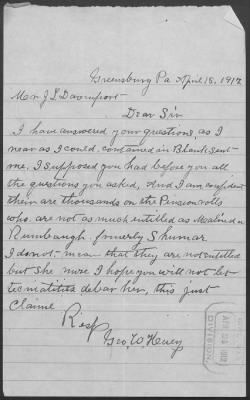 Greensburg Pa April 18, 1912
Mr. J L Davenport
Dear Sir
I have answered your questions, as I
near as I could, contained in Blank sent
me, I supposed you had before you all
the questions you asked, And I am confident
their are thousands on the Pension rolls
who are not as much entitled as Malinda
Rumbaugh formerly Shumar
I do not mean that they are not entitled
but she is more I hope you will not let
tecnicalitits debar her, this just
Claime
Resp
Geo. W
DIVISION